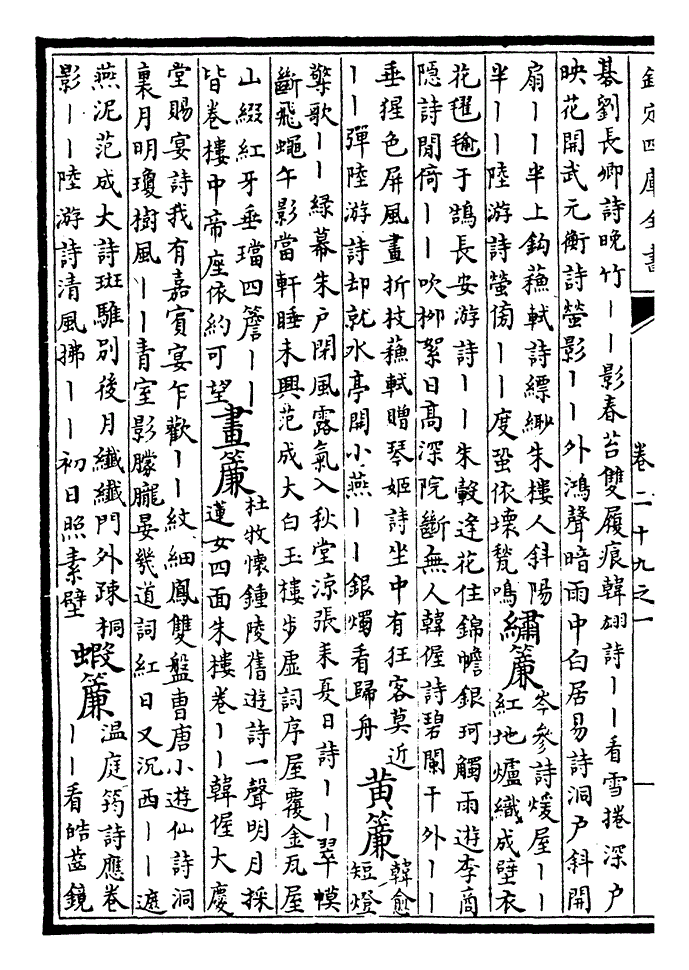 欽定四庫全書
卷二十九之一
碁劉長卿詩晚竹丨丨影春苔雙履痕韓翃詩丨丨看雪捲深戶
映花開武元衡詩螢影丨丨外鴻聲暗雨中白居易詩洞戶斜開
扇丨丨半上鈎蘓軾詩縹緲朱樓人斜陽
半丨丨陸游詩螢傍丨丨度蛩依壞甃鳴
繡簾
岑參詩煖屋丨丨
紅地爐織成壁衣
花氍毹于鵠長安游詩丨丨朱轂逹花住錦幨銀珂觸雨遊李商
隱詩閒倚丨丨吹栁絮日高深院斷無人韓偓詩碧闌干外丨丨
垂猩色屏風畫折枝蘓軾贈琴姬詩坐中有狂客莫近
丨丨彈陸游詩却就水亭開小燕丨丨銀燭看歸舟
黃簾
韓愈
短燈
檠歌丨丨綠幕朱戶閉風露氣入秋堂涼張耒夏日詩丨丨翠幙
斷飛蠅午影當軒睡未興范成大白玉樓步虛詞序屋覆金瓦屋
山綴紅牙垂璫四簷丨丨
皆卷樓中帝座依約可望
畫簾
杜牧懷鍾陵舊遊詩一聲明月採
蓮女四面朱樓卷丨丨韓偓大慶
堂賜宴詩我有嘉賓宴乍歡丨丨紋細鳳雙盤曹唐小遊仙詩洞
裏月明瓊樹風丨丨青室影朦朧晏幾道詞紅日又沉西丨丨遮
燕泥范成大詩斑騅別後月纖纖門外疎桐
影丨丨陸游詩清風拂丨丨初日照素壁
蝦簾
溫庭筠詩應卷
丨丨看皓齒鏡